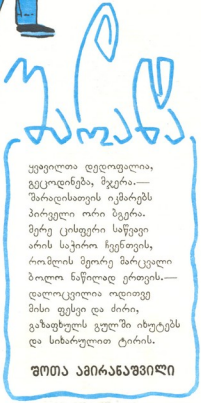 შარადა
ყვავილთა დედოფალია,
გეცოდინება, მჯერა.—
შარადისათვის იკმარებს
პირველი ორი ბგერა.
მერე ცისფერი საწვავი
არის საჭირო ჩვენთვის,
რომლის მეორე მარცვალი
ბოლო ნაწილად ერთვის.—
დალოცვილია ოდითვე
მისი ფესვი და ძირი,
გაზაფხულს გულში იხუტებს
და სიხარულით ტირის.
შოთა ამირანაშვილი